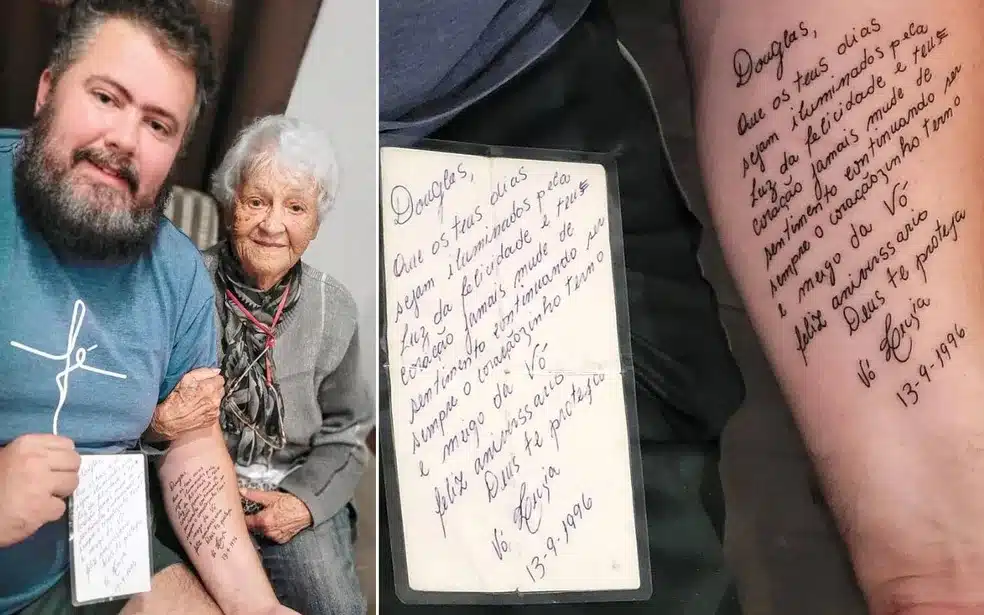 fé
Douglas,
Que os teus dias
sejam iluminados pela
Luz da felicidade e teus
coração jamais mude de
sentimento continuando ser
sempre o coraçãozinho terno
e meigo da Vó
feliz anivirssario
Deus te proteja
Vó Luzia
13-9-1996
Douglas,
Que os teus dias
sejam iluminados pela
Luz da felicidade e teus
coração jamais mude de
sentimento continuando ser
sempre o coraçãozinho terno
e meigo da Vó
feliz anivirssario
Deus te proteja
Vó Luzia
13-9-1996